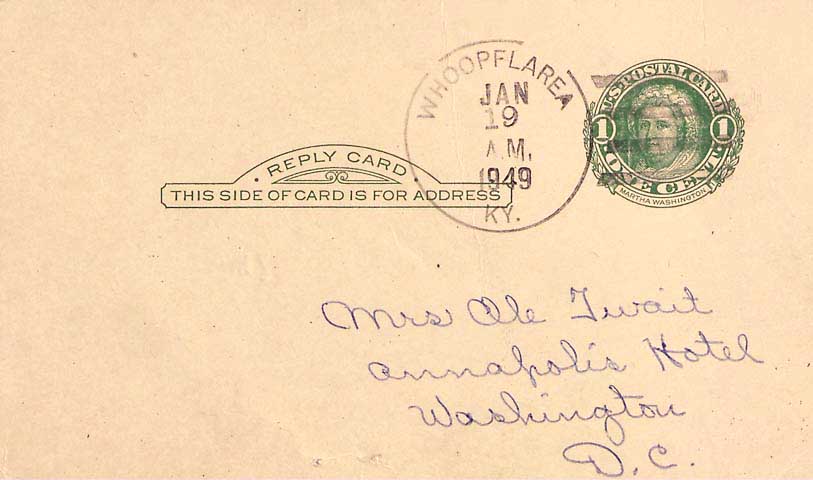 WHOOPFLAREA
JAN
19
A.M.
1949
KY.
U.S. POSTAL CARD
1 1
ONE CENT
MARTHA WASHINGTON
REPLY CARD
THIS SIDE OF CARD IS FOR ADDRESS
Mrs Ole Twait
Annapolis Hotel
Washington
D.C.